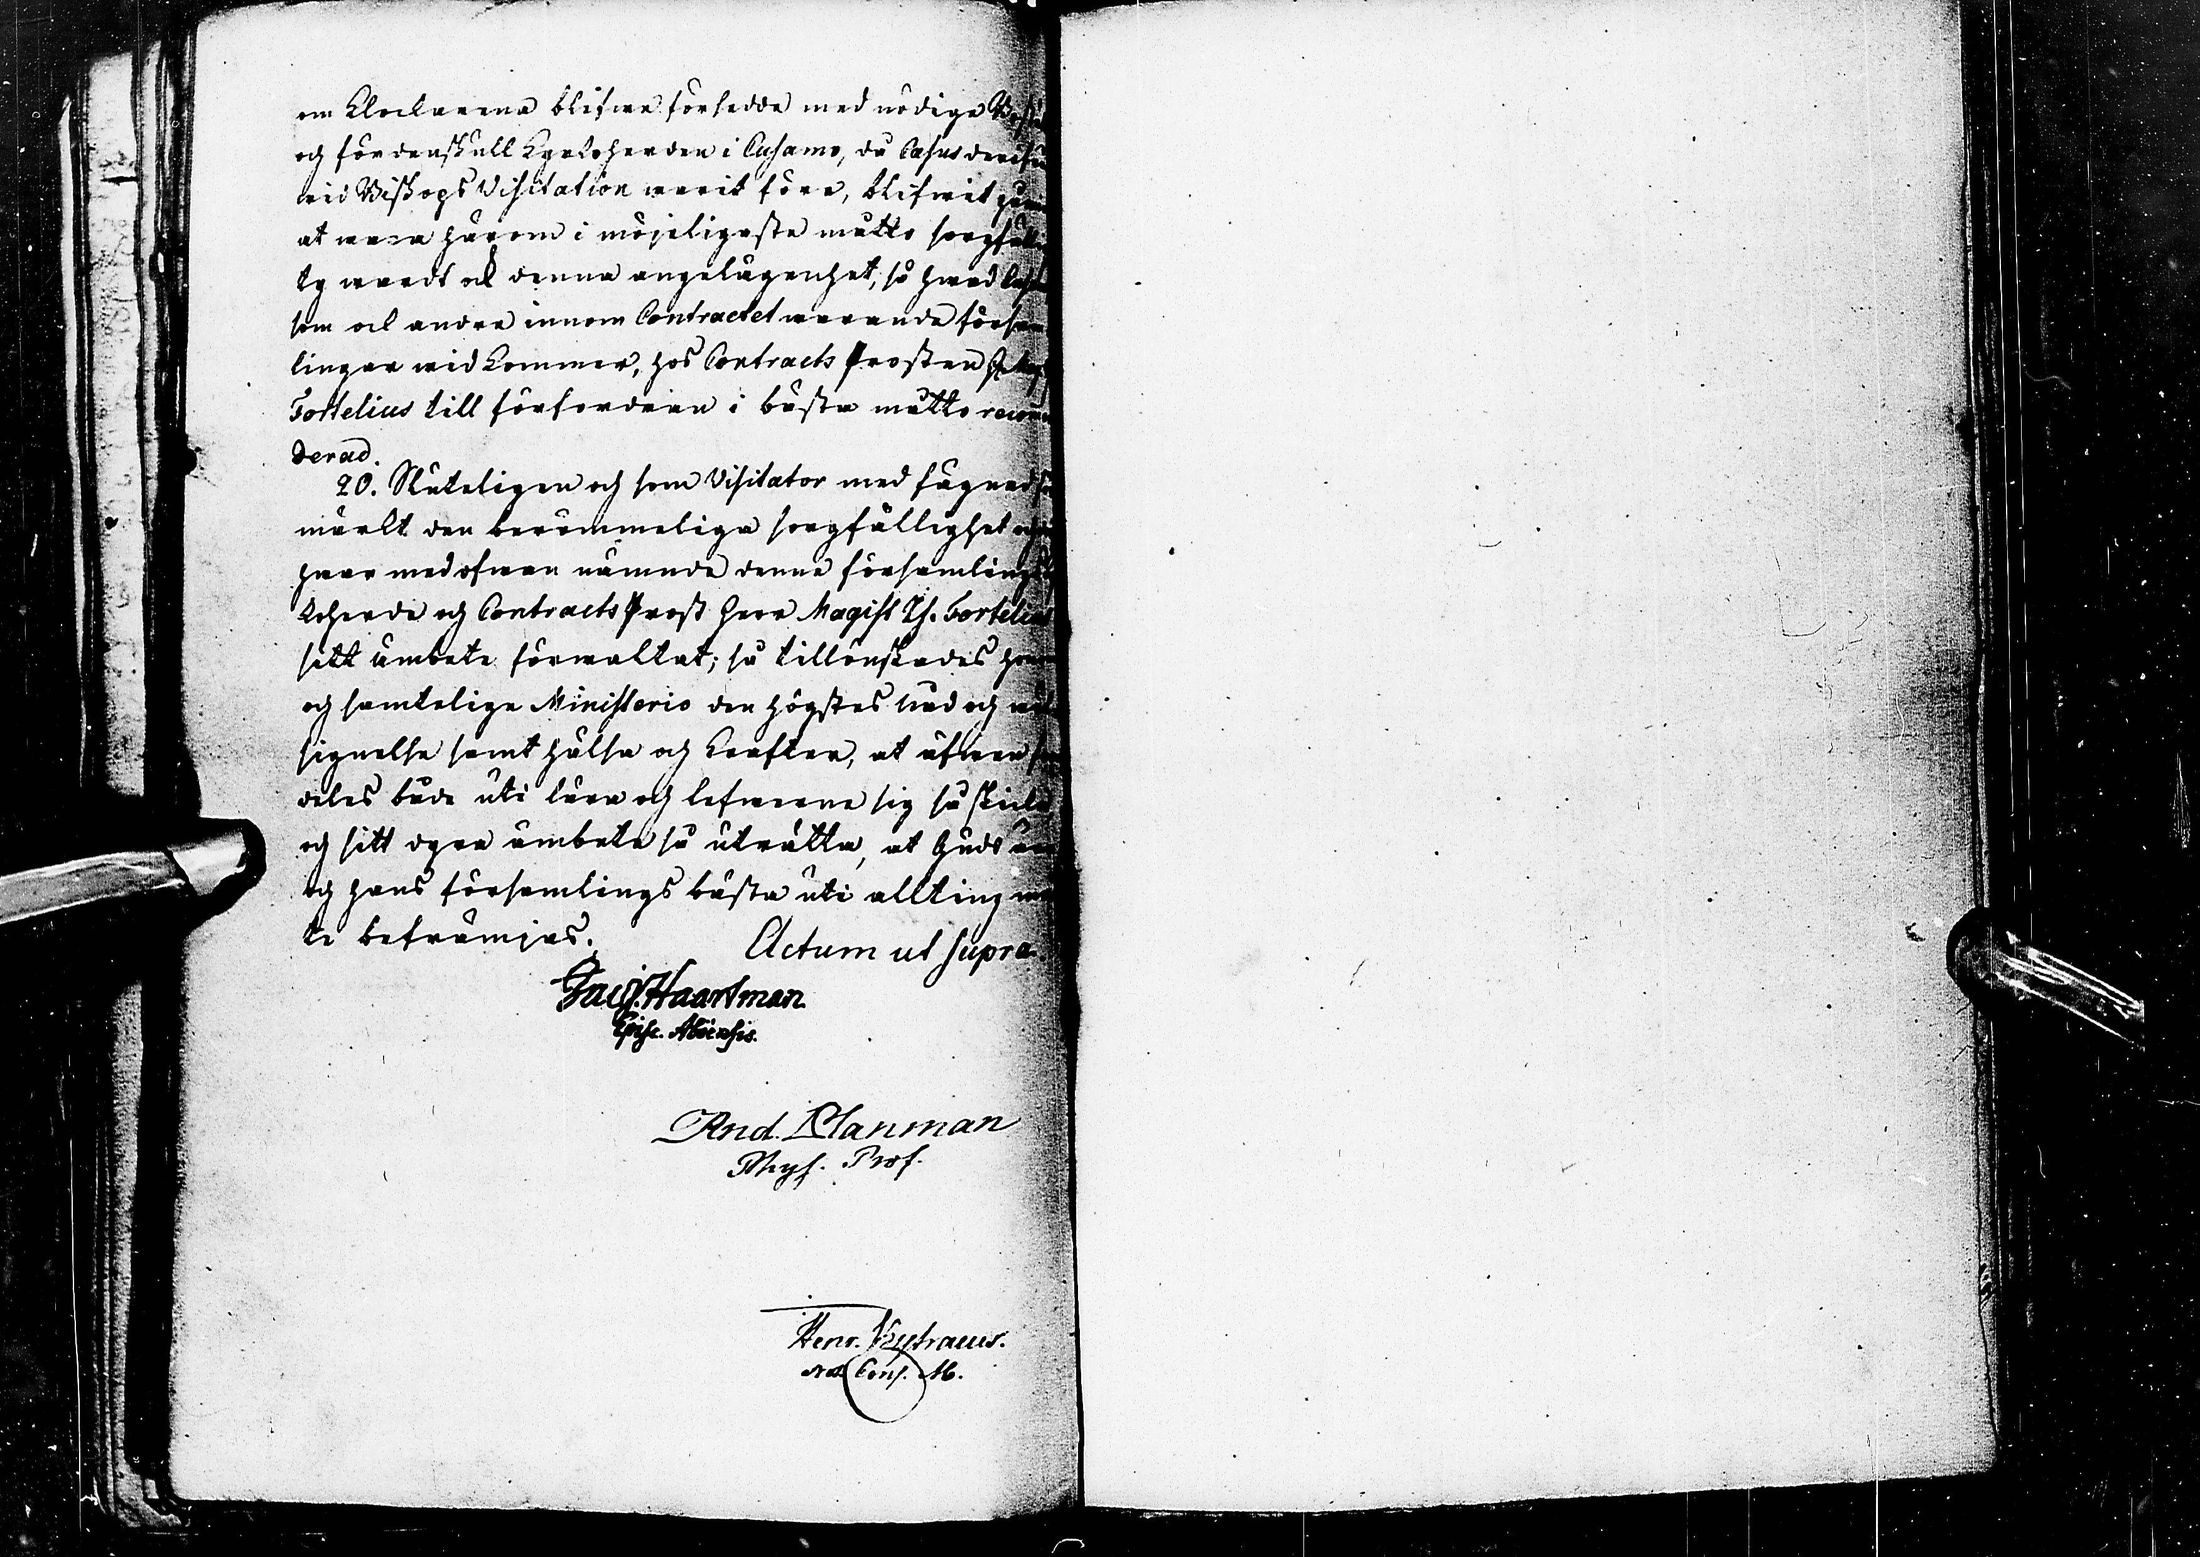 om Klockarena blifwa försedde med nödige
och fördenskull Kyrkoherden i Cusamo, då Casus
wid Biskops Visitation warit före, blifwit
at wara härom i möjeligaste måtto sorgfällig
ty wardt ock denna angelägenhet, så hwad
som ock andra innom Contractet warande försam
lingar widkommer, hos Contracts Prosten
Fortelius till förfordran i bästa måtto recomen
derad.
20. Sluteligen och som Visitator med fägnad
märkt den berömmeliga sorgfällighet
hwar med ofwan nämnde denne församlings
koherde och Contracts Prost Herr Magist Is. Fortelius
sitt ämbete förwaltat; så tillönskades honom
och samtelige Ministerio den högstes Nåd och wäl
signelse samt hälsa och krafter, at äfwen
deles både uti lära och lefwerne sig så skicka
och sitt dyra ämbete så uträtta, at Guds ära
och hans församlings bästa uti allting må
te befrämjas.
Actum ut supra.
Jac. Haartman
Episc. Aboensis.
And. Planman
Phys. Prof.
Henr. Kytraeus.
Not Cons. M.